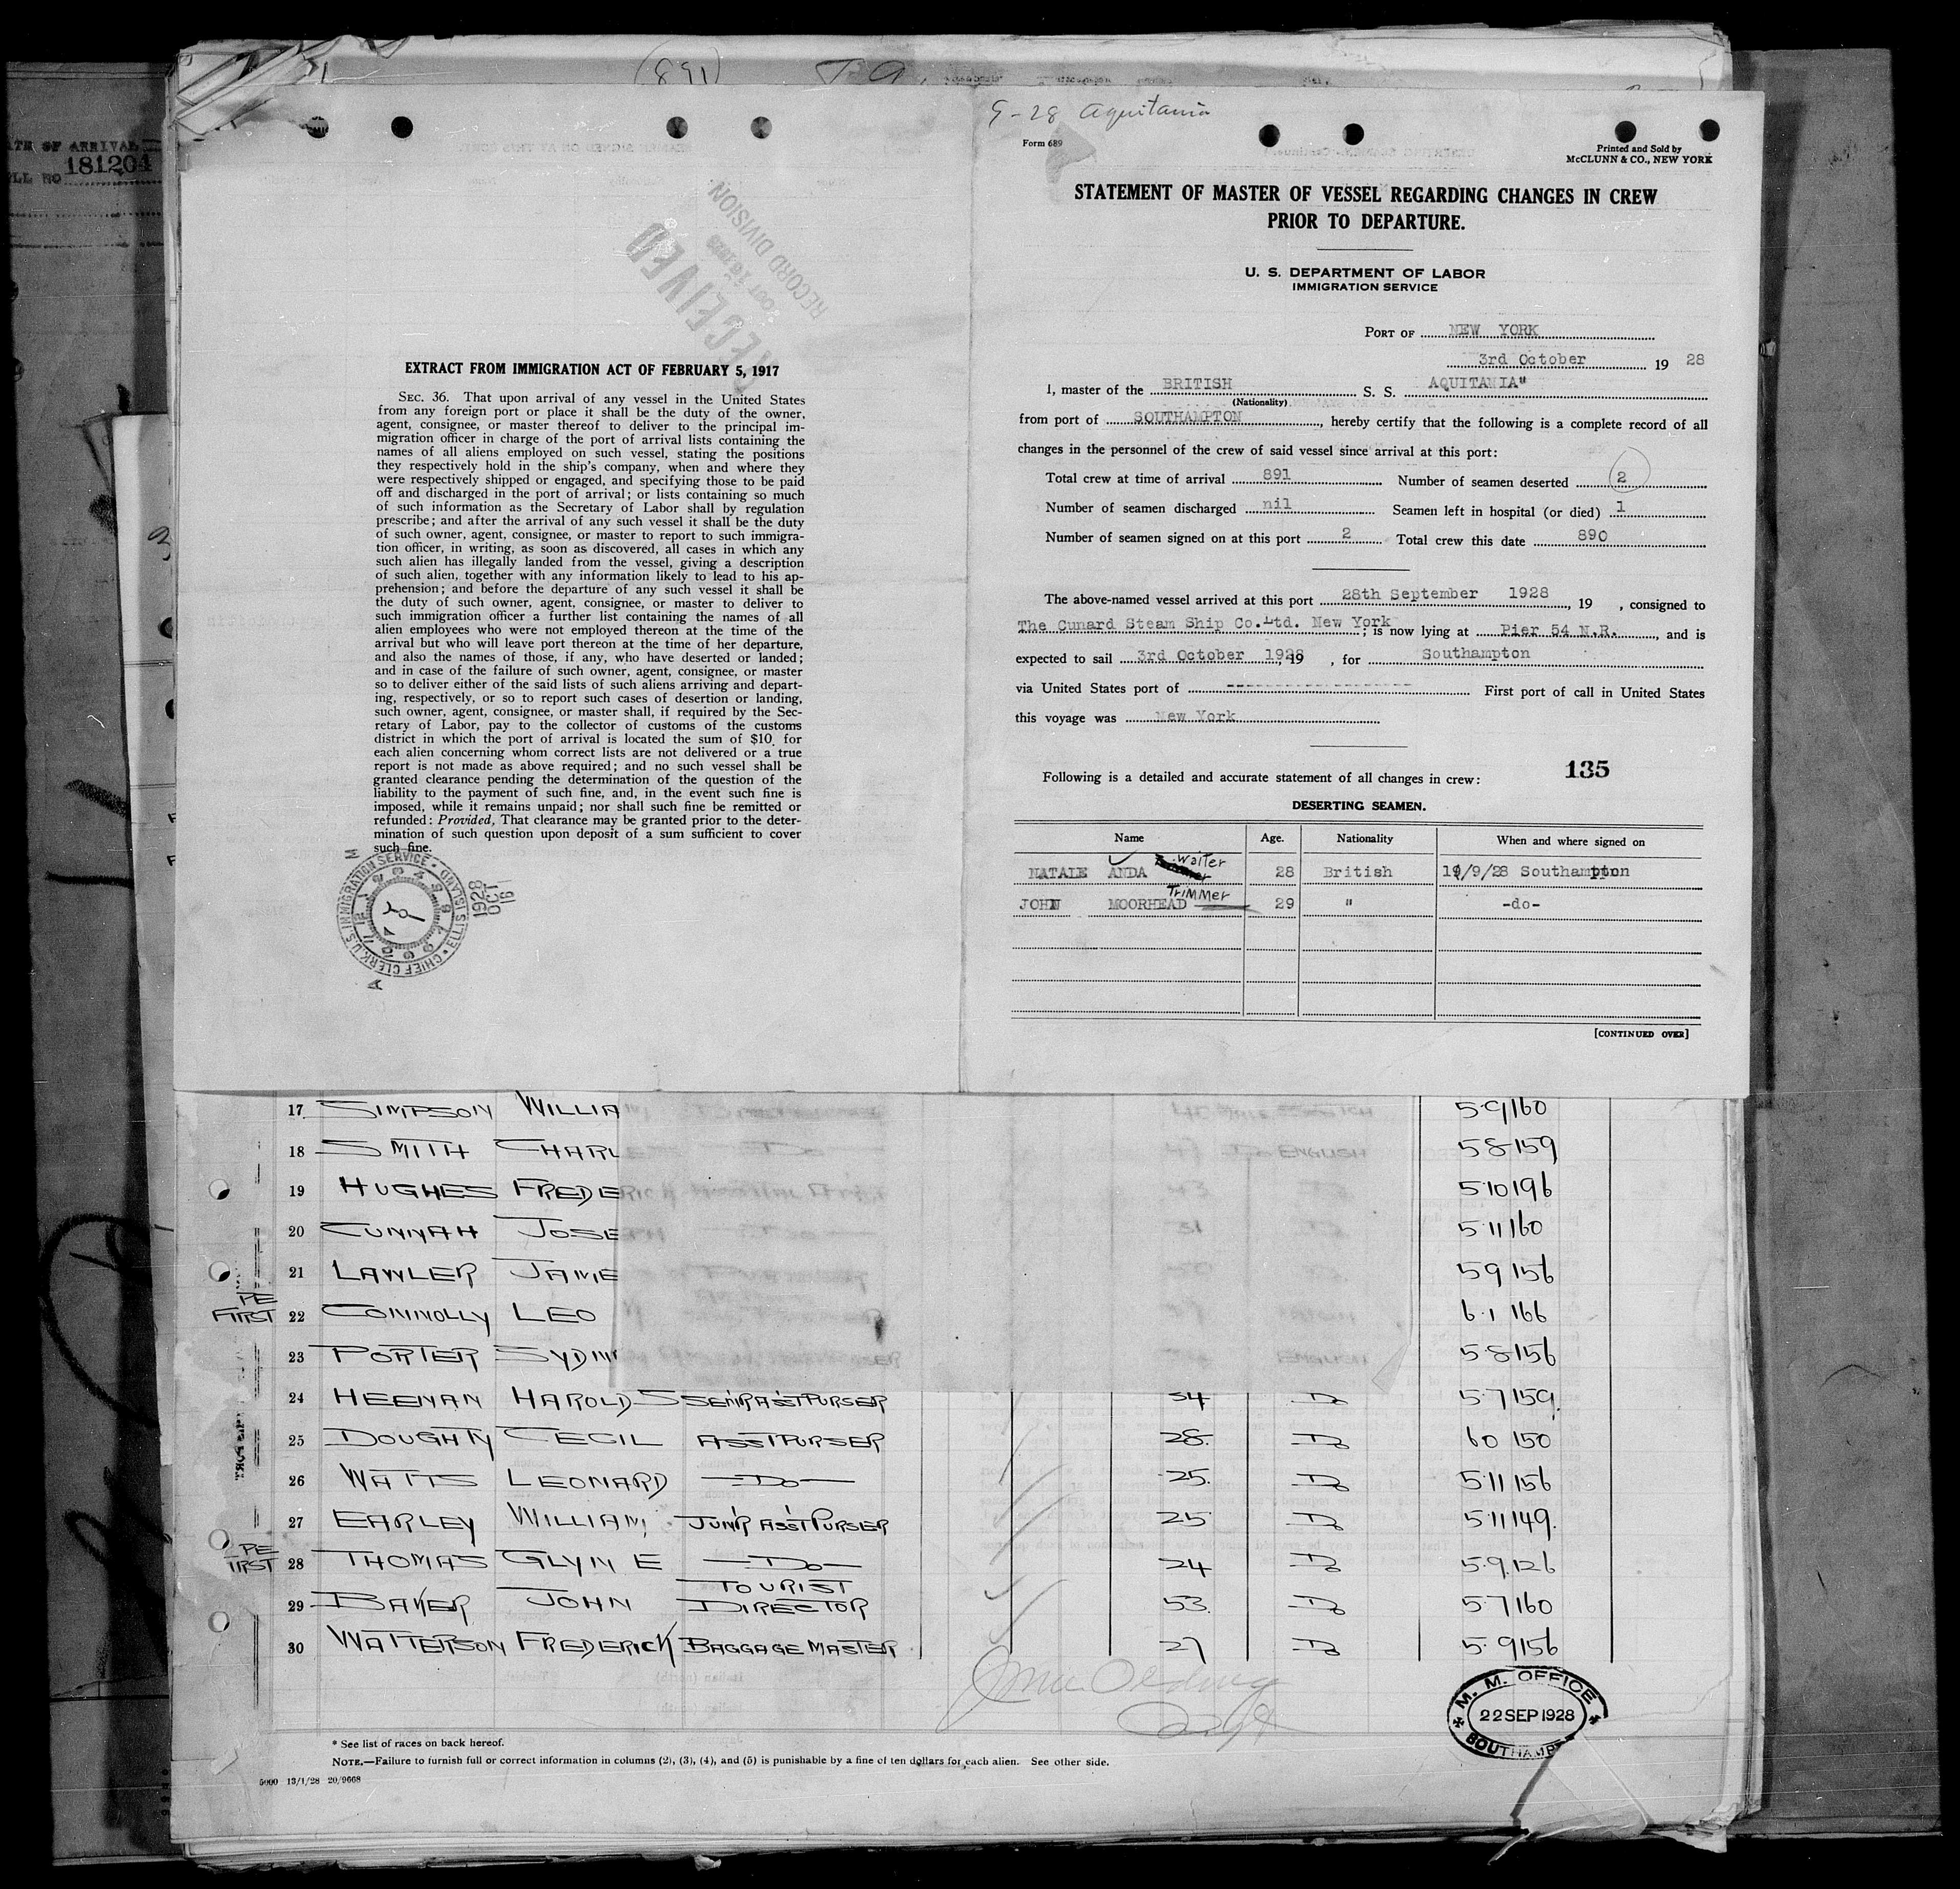 (891)
DATE OF ARRIVAL
181204
5-28 Aquitania
Form 689
Printed and Sold by
McCLUNN & CO., NEW YORK
STATEMENT OF MASTER OF VESSEL REGARDING CHANGES IN CREW
PRIOR TO DEPARTURE.
U. S. DEPARTMENT OF LABOR
IMMIGRATION SERVICE
PORT OF NEW YORK
3rd October 19 28
I, master of the BRITISH S. S. AQUITANIA"
(Nationality)
from port of SOUTHAMPTON, hereby certify that the following is a complete record of all
changes in the personnel of the crew of said vessel since arrival at this port:
Total crew at time of arrival 891 Number of seamen deserted 2
Number of seamen discharged nil Seamen left in hospital (or died) 1
Number of seamen signed on at this port 2 Total crew this date 890
The above-named vessel arrived at this port 28th September 1928, 19 , consigned to
The Cunard Steam Ship Co.Ltd. New York; is now lying at Pier 54 N.R., and is
expected to sail 3rd October 1928, 19 , for Southampton
via United States port of -------------------- First port of call in United States
this voyage was New York
Following is a detailed and accurate statement of all changes in crew: 135
DESERTING SEAMEN.
Name Age. Nationality When and where signed on
NATALE ANDA Waiter 28 British 19/9/28 Southampton
JOHN MOORHEAD Trimmer 29 " -do-
[CONTINUED OVER]
RECEIVED
OCT 16 1928
RECORD DIVISION
EXTRACT FROM IMMIGRATION ACT OF FEBRUARY 5, 1917
SEC. 36. That upon arrival of any vessel in the United States
from any foreign port or place it shall be the duty of the owner,
agent, consignee, or master thereof to deliver to the principal im-
migration officer in charge of the port of arrival lists containing the
names of all aliens employed on such vessel, stating the positions
they respectively hold in the ship's company, when and where they
were respectively shipped or engaged, and specifying those to be paid
off and discharged in the port of arrival; or lists containing so much
of such information as the Secretary of Labor shall by regulation
prescribe; and after the arrival of any such vessel it shall be the duty
of such owner, agent, consignee, or master to report to such immigra-
tion officer, in writing, as soon as discovered, all cases in which any
such alien has illegally landed from the vessel, giving a description
of such alien, together with any information likely to lead to his ap-
prehension; and before the departure of any such vessel it shall be
the duty of such owner, agent, consignee, or master to deliver to
such immigration officer a further list containing the names of all
alien employees who were not employed thereon at the time of the
arrival but who will leave port thereon at the time of her departure,
and also the names of those, if any, who have deserted or landed;
and in case of the failure of such owner, agent, consignee, or master
so to deliver either of the said lists of such aliens arriving and depart-
ing, respectively, or so to report such cases of desertion or landing,
such owner, agent, consignee, or master shall, if required by the Sec-
retary of Labor, pay to the collector of customs of the customs
district in which the port of arrival is located the sum of $10 for
each alien concerning whom correct lists are not delivered or a true
report is not made as above required; and no such vessel shall be
granted clearance pending the determination of the question of the
liability to the payment of such fine, and, in the event such fine is
imposed, while it remains unpaid; nor shall such fine be remitted or
refunded: Provided, That clearance may be granted prior to the deter-
mination of such question upon deposit of a sum sufficient to cover
such fine.
CHIEF CLERK U.S. IMMIGRATION SERVICE ELLIS ISLAND
1928 OCT 16
17 SIMPSON WILLIA 5·9 160
18 SMITH CHARL ENGLISH 5 8 159
19 HUGHES FREDERICK 5 10 196
20 CUNNAH JOSE 5·11 160
21 LAWLER JAME 5 9 156
22 CONNOLLY LEO 6·1 166
23 PORTER SYDN ENGLISH 5·8 156
24 HEENAN HAROLD S SEN'R ASS'T PURSER 34 Do 5·7 159.
25 DOUGHTY CECIL ASS'T PURSER 28. Do 6 0 150
26 WATTS LEONARD —Do— 25. Do 5·11 156
27 EARLEY WILLIAM JUN'R ASS'T PURSER 25 Do 5·11 149.
28 THOMAS GLYN E —Do— 24 Do 5·9.126
29 BAKER JOHN TOURIST DIRECTOR 53. Do 5·7 160
30 WATTERSON FREDERICK BAGGAGE MASTER 27 Do 5·9 156
M. M. OFFICE
22 SEP 1928
SOUTHAMP
* See list of races on back hereof.
NOTE.—Failure to furnish full or correct information in columns (2), (3), (4), and (5) is punishable by a fine of ten dollars for each alien. See other side.
5000 13/1/28 20/9668